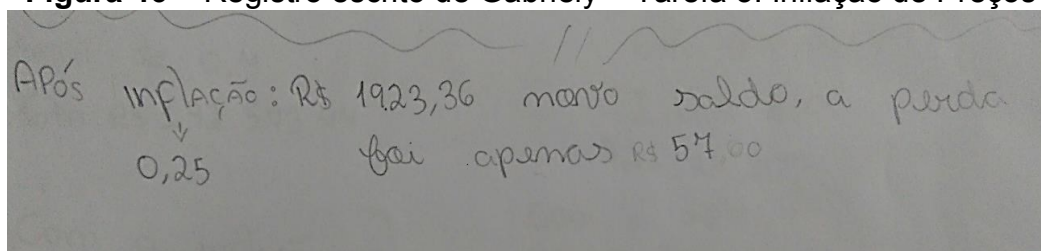 Figura 43 – Registro escrito de Gabriely – Tarefa 5: Inflação de Preços
Após inflação: R$ 1923,36 novo saldo, a perda
0,25 foi apenas R$ 57,00